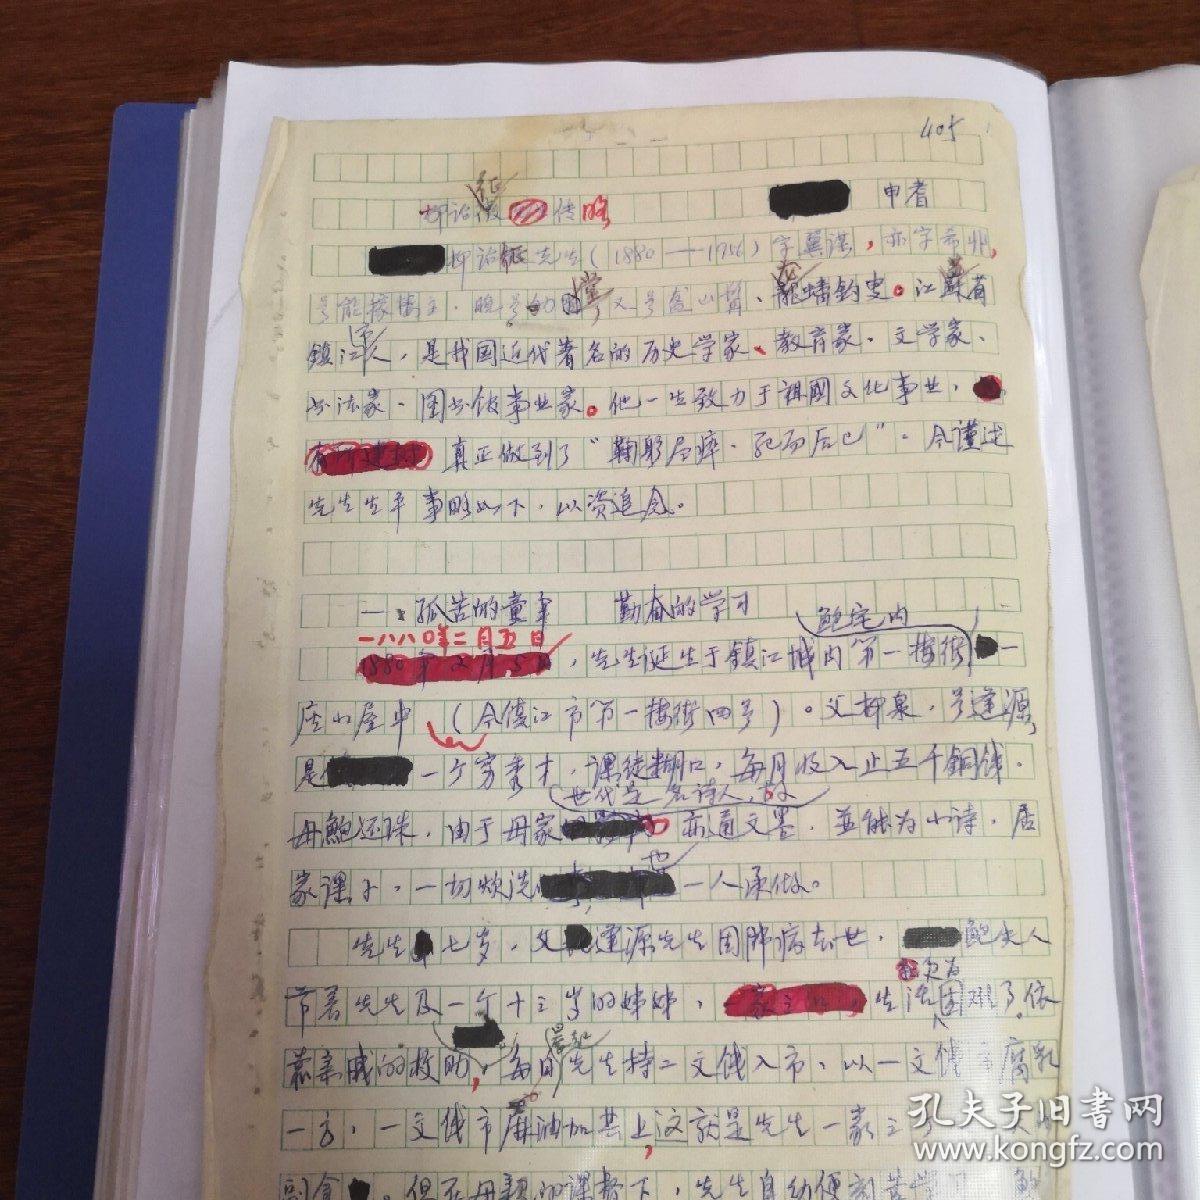 405
柳诒徵传略
申耆
柳诒徵先生(1880—1956)字翼谋,亦字希兆,
号知 晚号劬堂 又号盋山髯、龙蟠钓叟。江苏省
镇江市人,是我国近代著名的历史学家、教育家、文学家、
书法家、图书馆事业家。他一生致力于祖國文化事业,
真正做到了“鞠躬尽瘁、死而后已”。今谨述
先生生平事略如下,以资追念。
一、孤苦的童年 勤奋的学习
一八八0年二月五日
鲍宅内
,先生诞生于镇江城内第一楼街一
座小屋中(今镇江市第一楼街四号)。父柳泉,号逢源,
是一个穷秀才,课徒糊口,每月收入止五千銅钱。
世代是名诗人,故
母鲍还珠,由于母家亦通文墨,並能为小诗,居
家课子,一切烦洗也一人承做。
先生七岁,父逢源先生因肺病去世,鲍夫人
带着先生及一个十三岁的姊姊,生活更为困难了。依
靠亲戚的救助,每日晨起先生持二文钱入市,以一文钱市腐乳
一方,一文钱市麻油加其上,这就是先生一家三
副食。但在母親的课督下,先生自幼便刻苦学习
孔夫子旧书网
www.kongfz.com